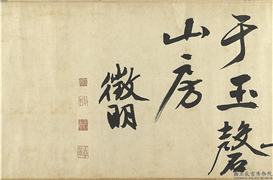 于玉磬
山房
徵明